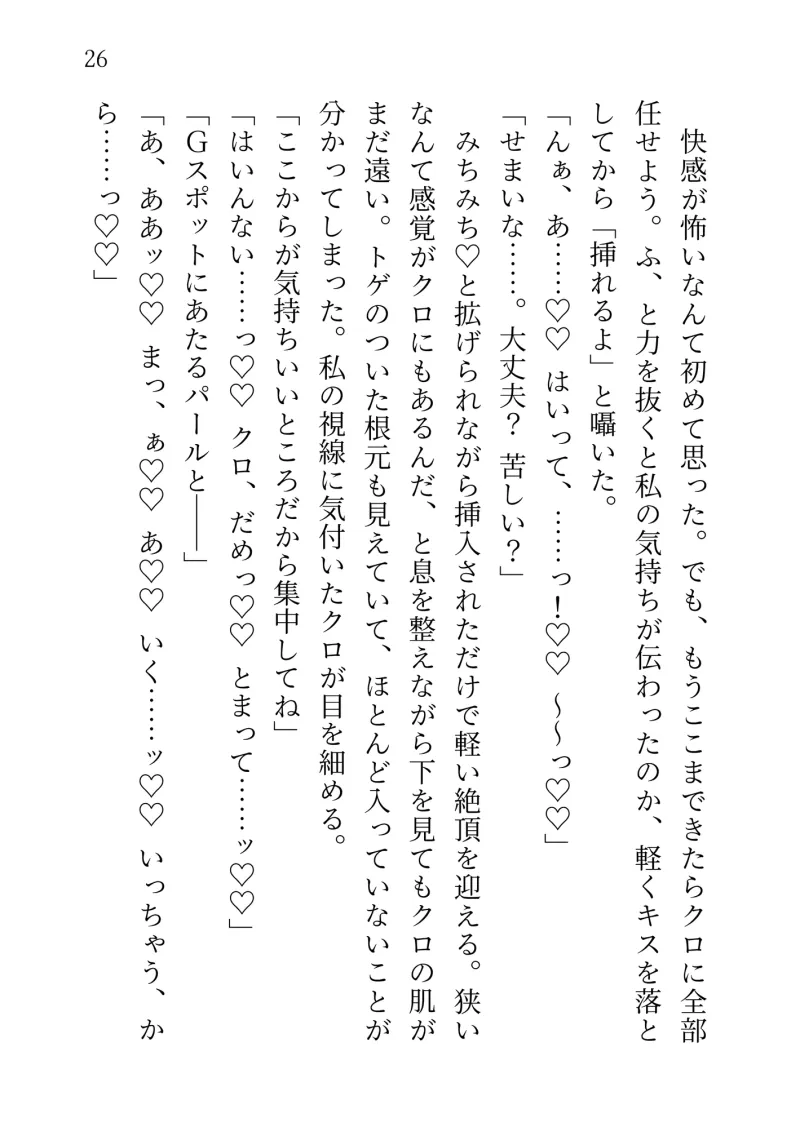 26
快感が怖いなんて初めて思った。でも、もうここまできたらクロに全部
任せよう。ふ、と力を抜くと私の気持ちが伝わったのか、軽くキスを落と
してから「挿れるよ」と囁いた。
「んぁ、あ……♡♡ はいって、……っ！♡♡ ～～っ♡♡」
「せまいな……。大丈夫？ 苦しい？」
みちみち♡と拡げられながら挿入されただけで軽い絶頂を迎える。狭い
なんて感覚がクロにもあるんだ、と息を整えながら下を見てもクロの肌が
まだ遠い。トゲのついた根元も見えていて、ほとんど入っていないことが
分かってしまった。私の視線に気付いたクロが目を細める。
「ここからが気持ちいいところだから集中してね」
「はいんない……っ♡♡ クロ、だめっ♡♡ とまって……ッ♡♡」
「Ｇスポットにあたるパールと――」
「あ、ああッ♡♡ まっ、ぁ♡♡ あ♡♡ いく……ッ♡♡ いっちゃう、か
ら……っ♡♡」